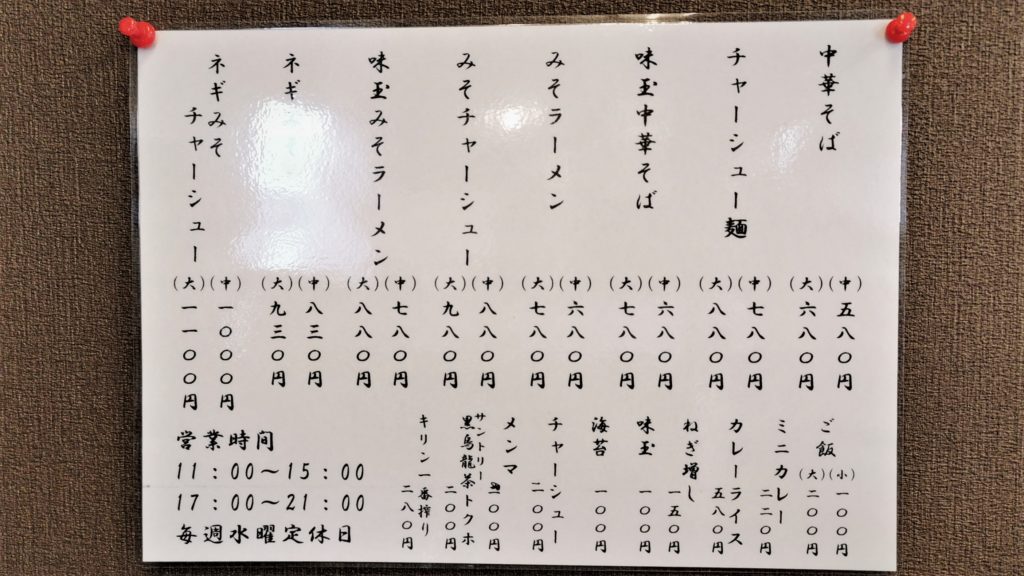 中華そば
(中)五八〇円
(大)六八〇円
チャーシュー麺
(中)七八〇円
(大)八八〇円
味玉中華そば
(中)六八〇円
(大)七八〇円
みそラーメン
(中)六八〇円
(大)七八〇円
みそチャーシュー
(中)八八〇円
(大)九八〇円
味玉みそラーメン
(中)七八〇円
(大)八八〇円
ネギ
(中)八三〇円
(大)九三〇円
ネギみそ
チャーシュー
(中)一〇〇〇円
(大)一一〇〇円
ご飯
(小)一〇〇円
(大)二〇〇円
ミニカレー 二二〇円
カレーライス 五八〇円
ねぎ増し 一五〇円
味玉 一〇〇円
海苔 一〇〇円
チャーシュー 二〇〇円
メンマ 〇〇円
サントリー
黒烏龍茶トクホ 二〇〇円
キリン一番搾り 二八〇円
営業時間
11:00～15:00
17:00～21:00
毎週水曜定休日